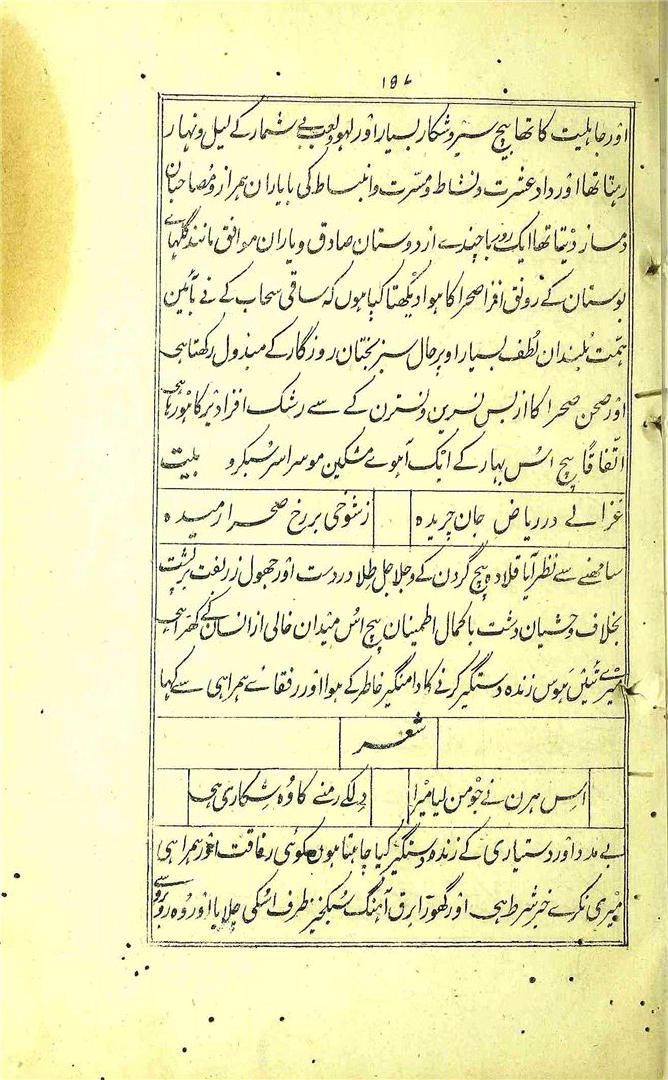 ۱۸۷
اور جاہلیت کا تھا بیچ سیر و شکار بسیار اور لہو و لعب بے شمار کے لیل و نہار
رہتا تھا اور داد عشرت و نشاط و مسرت و انبساط کی با یاران ہمراز و مصاحبان
دمساز دیتا تھا ایک روز با چندے از دوستان صادق و یاران موافق مانند گلہاے
بوستان کے رونق افزا صحرا کا ہوا دیکھتا کیا ہوں کہ ساقی سحاب کے نے بآئین
ہمت بلندان لطف بسیار اوپر حال سبز بختان روزگار کے مبذول رکھتا ہی
اور صحن صحرا کا از بس نسرین و نسترن کے سے رشک افزا دیر کا ہو رہا ہی
اتفاقاً بیچ اُس بہار کے ایک آہوے مشکین مو سراسر سبکرو بیت
غزالے در ریاض جان چریدہ
ز شوخی بر رخ صحرا رمیدہ
سامھنے سے نظر آیا قلادہ بیچ گردن کے و جلاجل طلا در دست اور جھول زربفت بر پشت
بخلاف وحشیان دشت با کمال اطمینان بیچ اُس میدان خالی از انسان کے کھڑا ہی
میرے تئیں ہوس زندہ دستگیر کرنے کا دامنگیر خاطر کے ہوا اور رفقاے ہمراہی سے کہا
شعر
اِس ہرن نے جو من لیا میرا
دل کے رمنے کا وُہ شکاری ہی
بے مدد اور دستیاری کے زندہ دستگیر کیا چاہتا ہوں کوئی رفاقت اور ہمراہی
میری نکرے خبر شرط ہی اور گھوڑا برق آہنگ سُبکخیز طرف اُسکی چلایا اور وُہ روبروسے